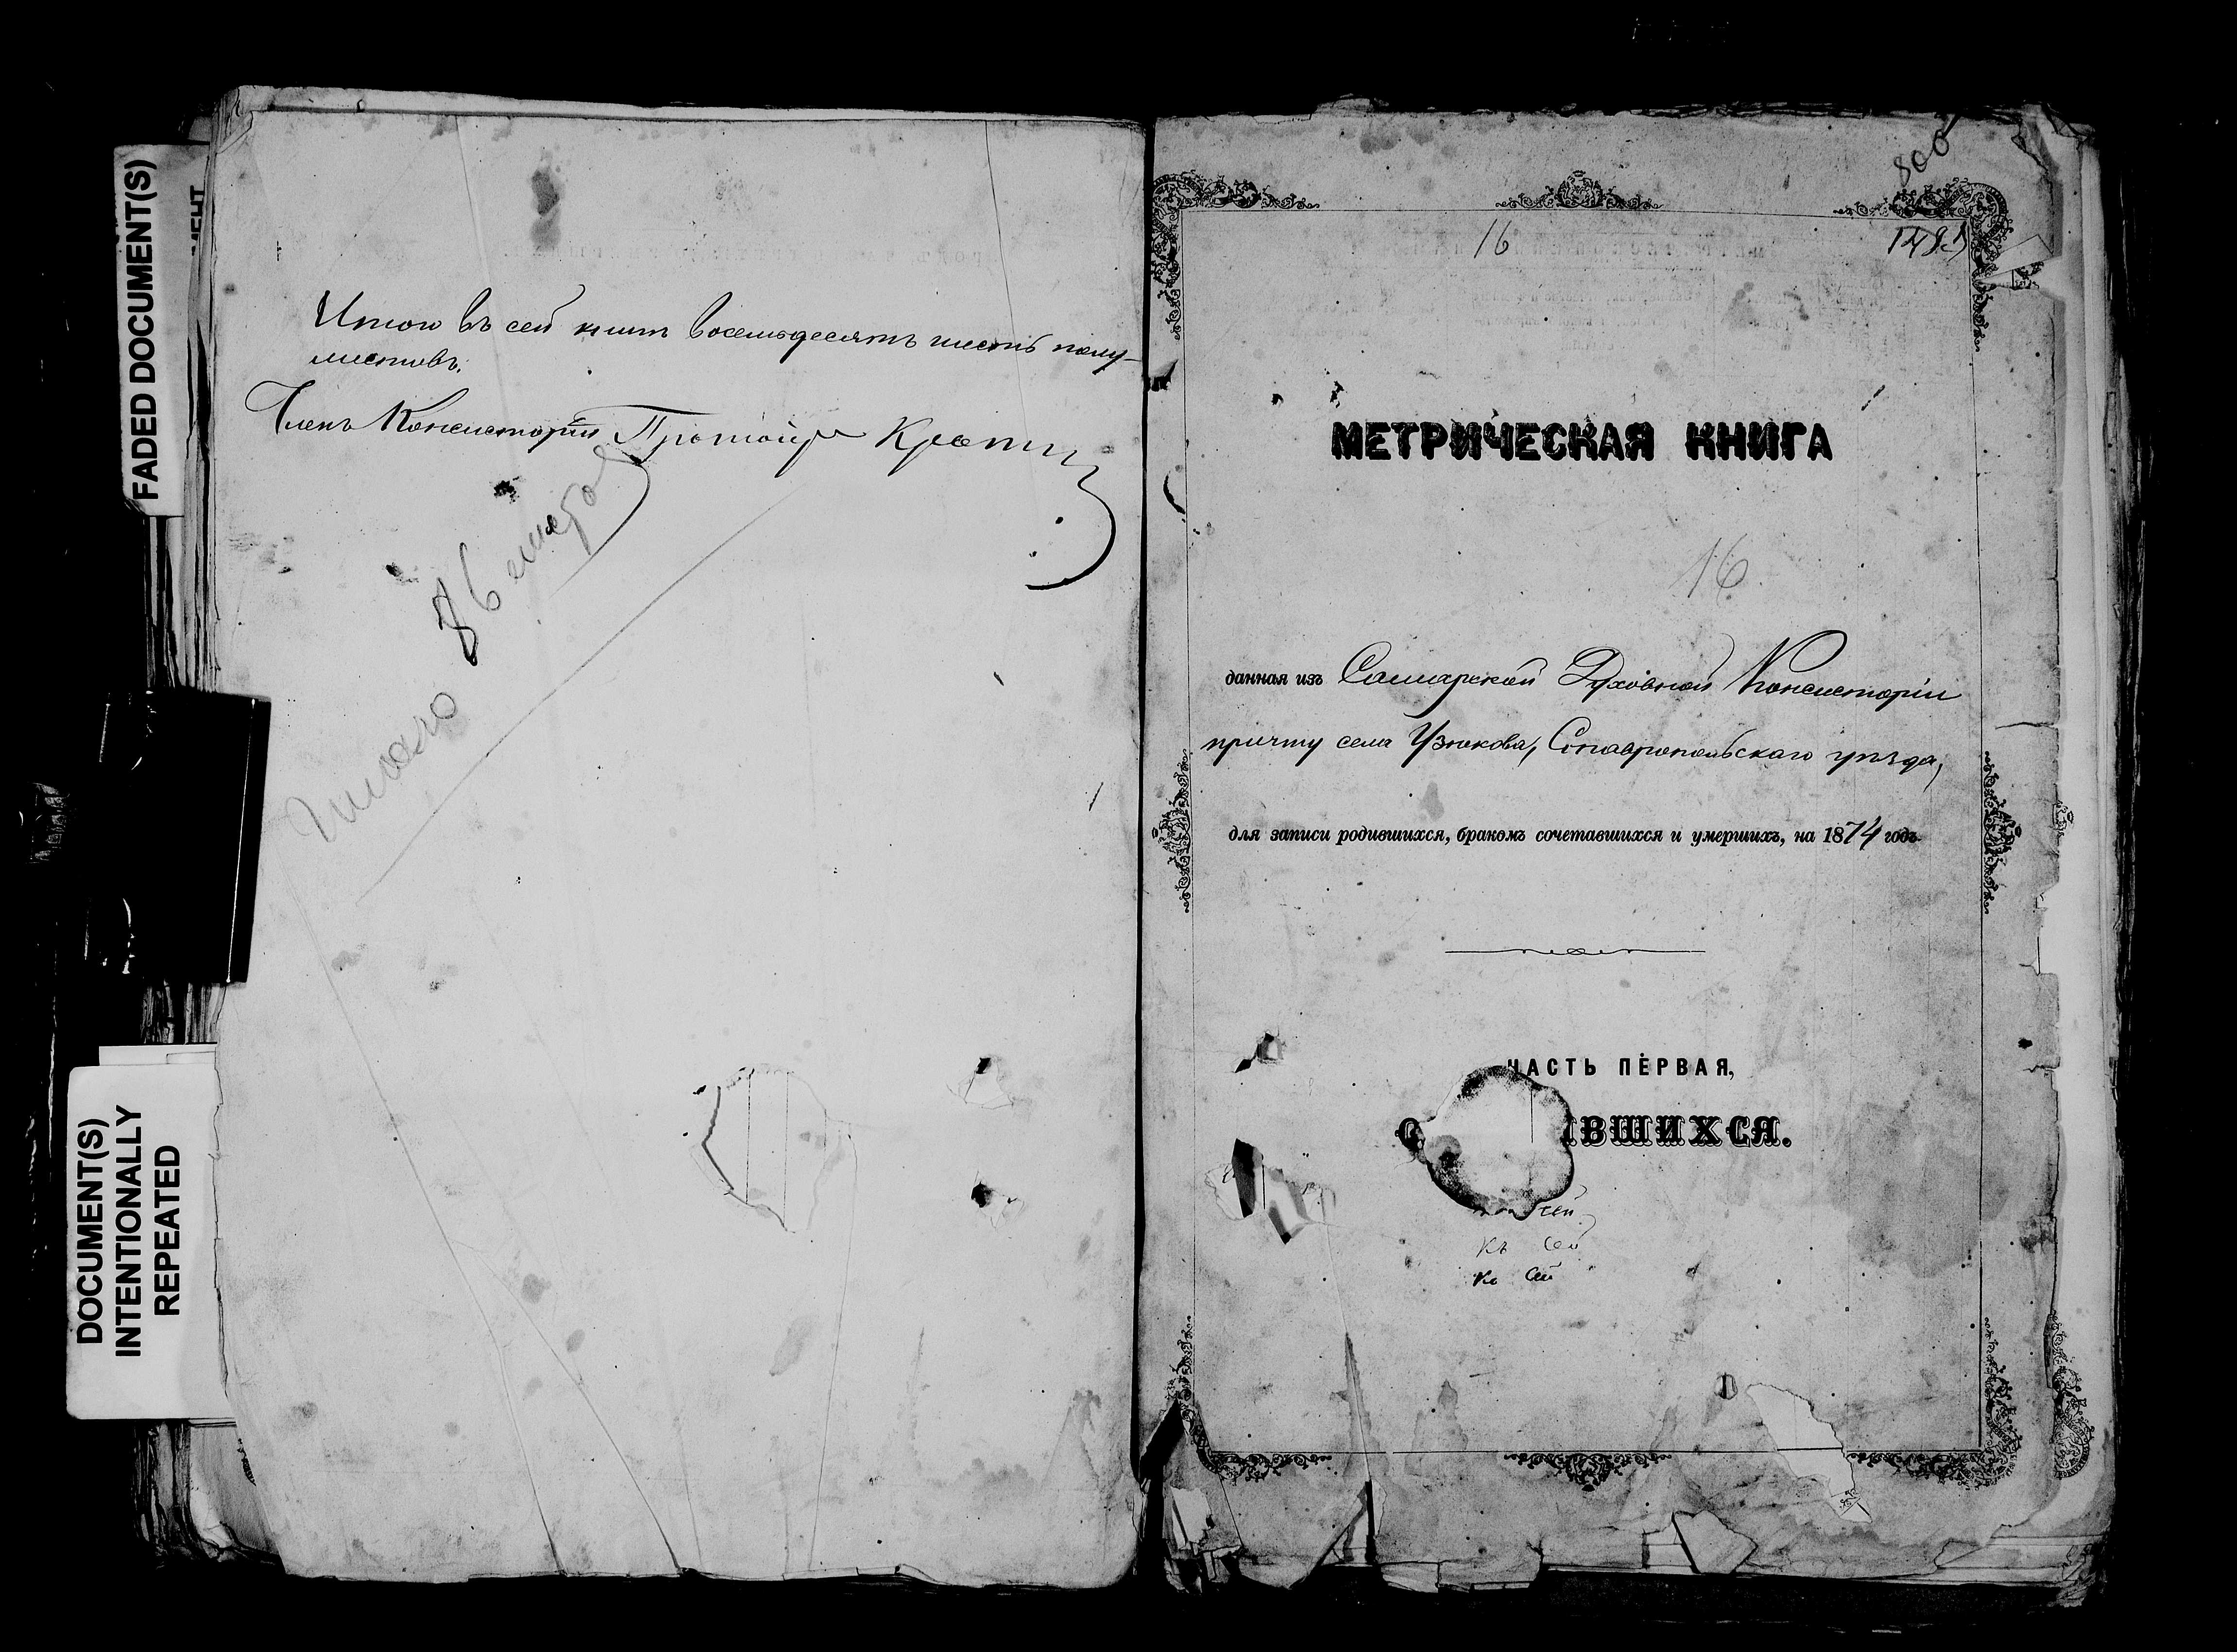 FADED DOCUMENT(S)
DOCUMENT(S)
INTENTIONALLY
REPEATED
Итого въ сей книгѣ восемьдесятъ шесть полу-
листовъ.
Членъ Консисторіи Протоіерей
86
800
16
МЕТРИЧЕСКАЯ КНИГА
16
данная изъ Самарской Духовной Консисторіи
причту села Узюкова, Ставропольскаго уѣзда,
для записи родившихся, бракомъ сочетавшихся и умершихъ, на 1874 годъ.
ЧАСТЬ ПЕРВАЯ,
О ВШИХСЯ.
сей
къ сей
къ сей